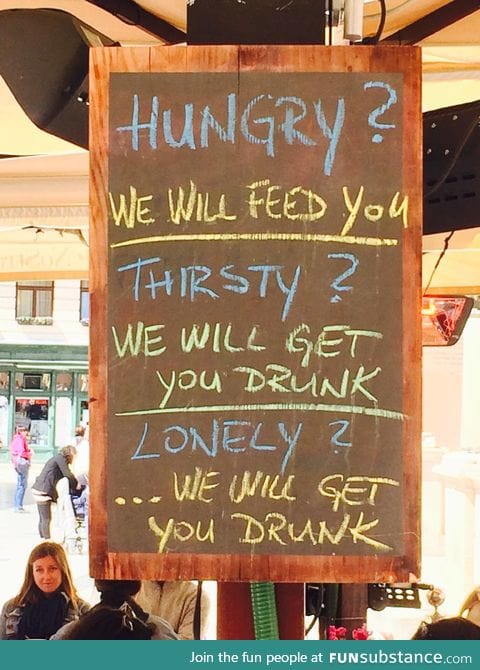 HUNGRY?
WE WILL FEED YOU
THIRSTY?
WE WILL GET
YOU DRUNK
LONELY?
...WE WILL GET
YOU DRUNK
Join the fun people at FUNsubstance.com